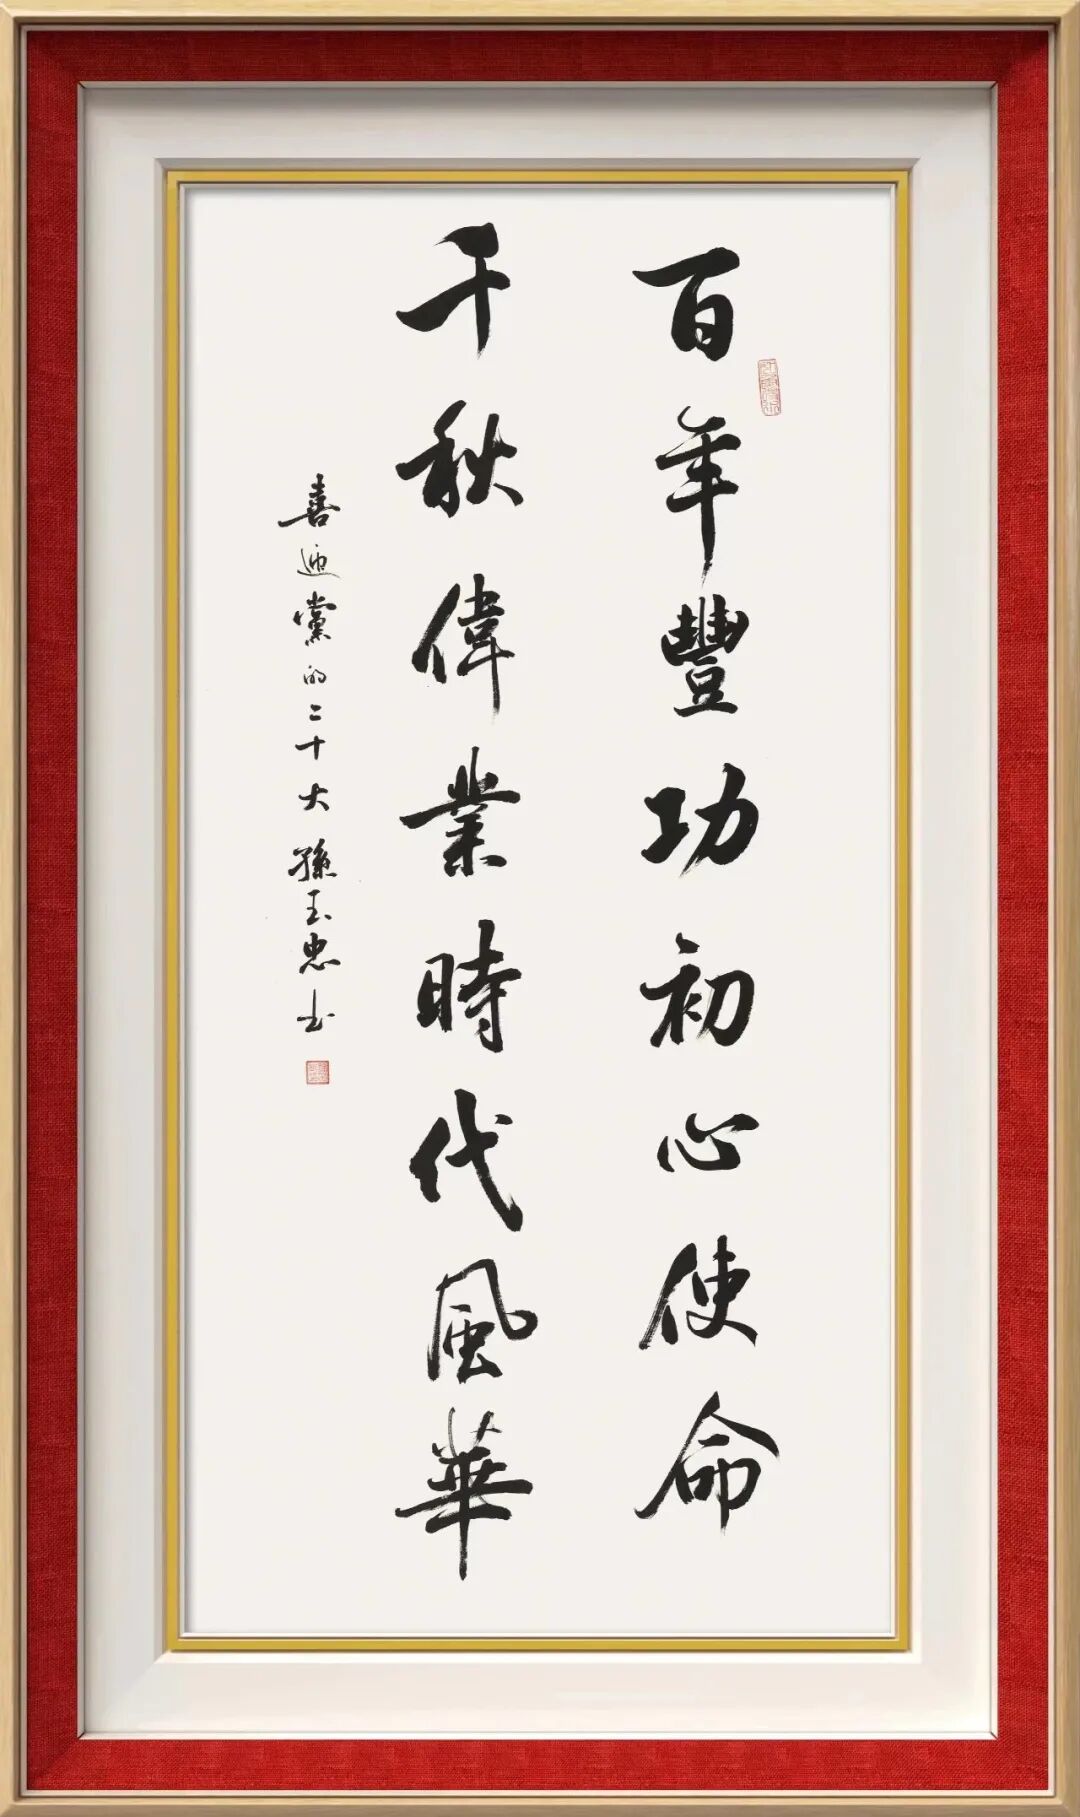 百年豐功初心使命
千秋偉業時代風華
喜迎黨的二十大 孫玉忠书